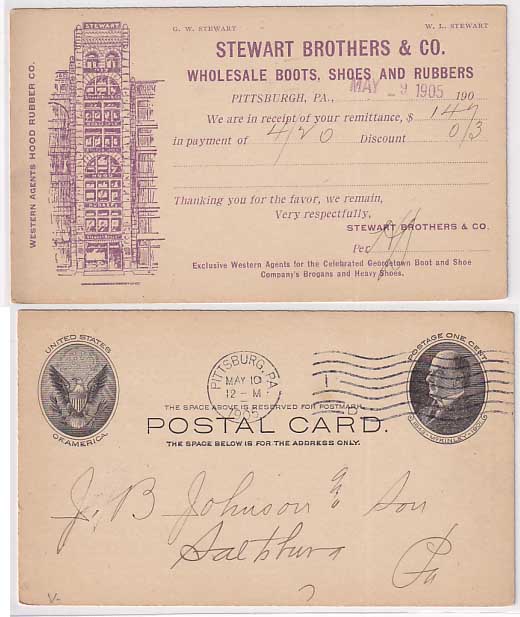 G. W. STEWART W. L. STEWART
STEWART
STEWART BROTHERS & CO.
WHOLESALE BOOTS, SHOES AND RUBBERS
PITTSBURGH, PA., MAY -9 1905 190
We are in receipt of your remittance, $ 147
in payment of 4/20 Discount 0/3
Thanking you for the favor, we remain,
Very respectfully,
STEWART BROTHERS & CO.
Per
Exclusive Western Agents for the Celebrated Georgetown Boot and Shoe
Company's Brogans and Heavy Shoes.
WESTERN AGENTS HOOD RUBBER CO.
UNITED STATES
OF AMERICA
PITTSBURG, PA.
MAY 10
12-M
1905
POSTAGE ONE CENT
1843-McKINLEY-1901
THE SPACE ABOVE IS RESERVED FOR POSTMARK
POSTAL CARD.
THE SPACE BELOW IS FOR THE ADDRESS ONLY.
J. B Johnson & Son
Saltsburg
Pa